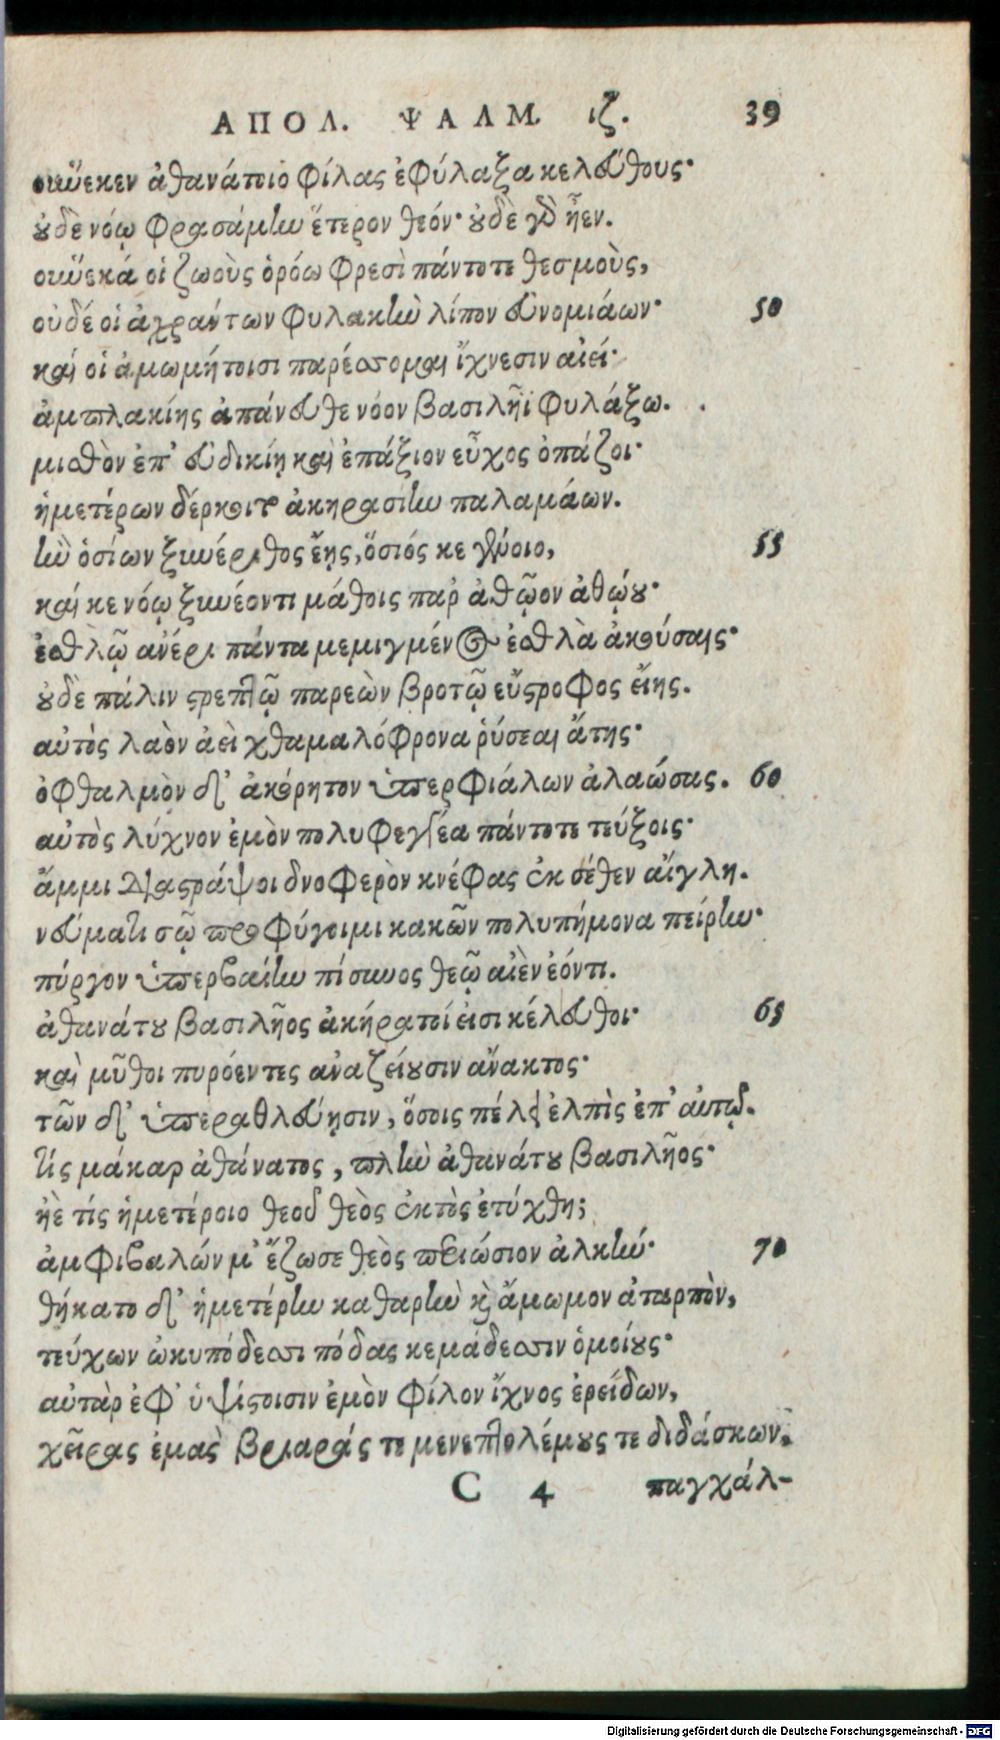 ΑΠΟΛ. ΨΑΛΜ. ιζ. 39
οὕνεκεν ἀθανάτοιο φίλας ἐφύλαξα κελεύθους·
οὐδὲ νόῳ φρασάμην ἕτερον θεόν· οὐδὲ γὰρ ἦεν.
οὕνεκά οἱ ζωοὺς ὁρόω φρεσὶ πάντοτε θεσμοὺς,
οὐδέ οἱ ἀχράντων φυλακὴν λίπον εὐνομιάων· 50
καί οἱ ἀμωμήτοισι παρέσσομαι ἴχνεσιν αἰεί·
ἀμπλακίης ἀπάνευθε νόον βασιλῆϊ φυλάξω.
μισθὸν ἐπ' εὐδικίῃ καὶ ἐπάξιον εὖχος ὀπάζοι·
ἡμετέρων δέρκοιτ' ἀκηρασίην παλαμάων.
ἢν ὁσίων ξυνέριθος ἔῃς, ὅσιός κε γένοιο,
55
καί κε νόῳ ξυνέοντι μάθοις παρ' ἀθῷον ἀθῴου·
ἐσθλῷ ἀνέρι πάντα μεμιγμένος ἐσθλὰ ἀκούσαις·
οὐδὲ πάλιν στρεπτῷ παρεὼν βροτῷ εὔστροφος εἴης.
αὐτὸς λαὸν ἀεὶ χθαμαλόφρονα ῥύσεαι ἄτης·
ὀφθαλμὸν δ' ἀκόρητον ὑπερφιάλων ἀλαώσας. 60
αὐτὸς λύχνον ἐμὸν πολυφεγγέα πάντοτε τεύξοις·
ἄμμι διαστράψοι δνοφερὸν κνέφας ἐκ σέθεν αἴγλη.
νεύματι σῷ προφύγοιμι κακῶν πολυπήμονα πείρην·
πύργον ὑπερβαίην πίσυνος θεῷ αἰὲν ἐόντι.
ἀθανάτου βασιλῆος ἀκήρατοί εἰσι κέλευθοι· 65
καὶ μῦθοι πυρόεντες ἀναζείουσιν ἄνακτος·
τῶν δ' ὑπεραθλεύῃσιν, ὅσοις πέλει ἐλπὶς ἐπ' αὐτῷ.
τίς μάκαρ ἀθάνατος, πλὴν ἀθανάτου βασιλῆος·
ἠὲ τίς ἡμετέροιο θεοῦ θεὸς ἐκτὸς ἐτύχθη;
ἀμφιβαλών μ' ἔζωσε θεὸς περιώσιον ἀλκήν· 70
θήκατο δ' ἡμετέρην καθαρὴν καὶ ἄμωμον ἀταρπὸν,
τεύχων ὠκυπόδεσσι πόδας κεμάδεσσιν ὁμοίους·
αὐτὰρ ἐφ' ὑψίστοισιν ἐμὸν φίλον ἴχνος ἐρείδων,
χεῖρας ἐμὰς βριαράς τε μενεπτολέμους τε διδάσκων,
C 4 παγχάλ-
Digitalisierung gefördert durch die Deutsche Forschungsgemeinschaft - DFG